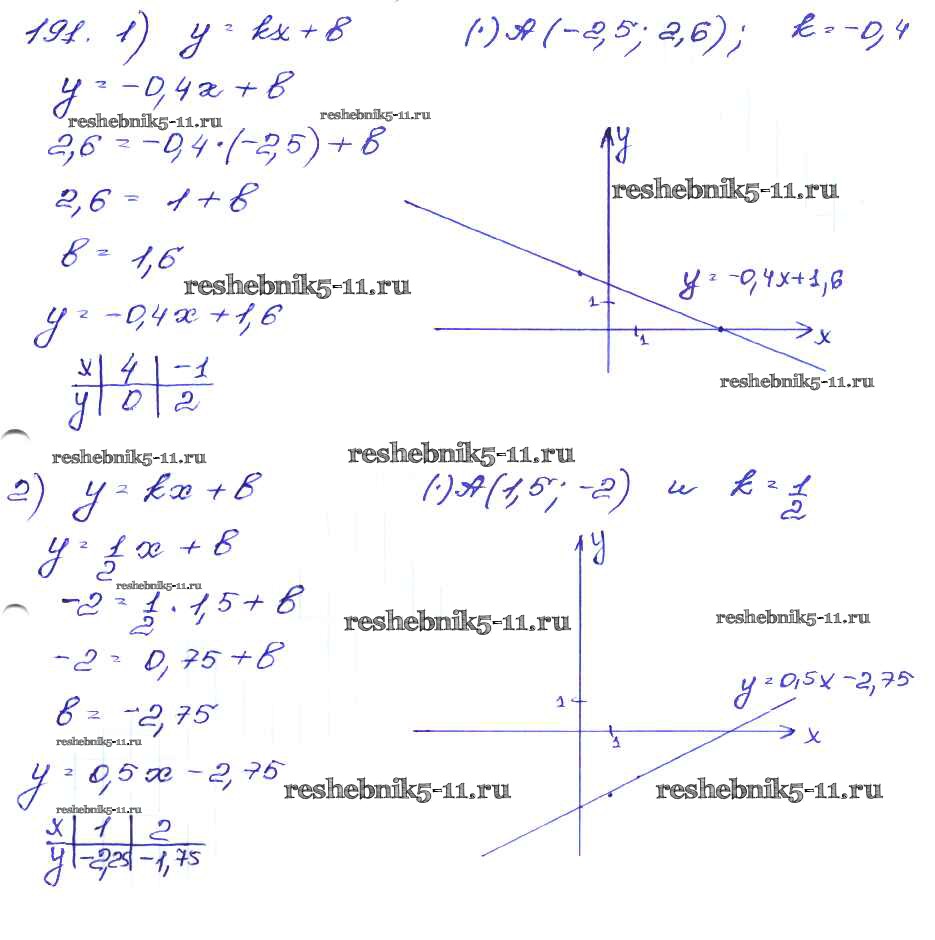 191. 1) y = kx + b (·) A (-2,5; 2,6); k = -0,4
y = -0,4x + b
reshebnik5-11.ru reshebnik5-11.ru
2,6 = -0,4 · (-2,5) + b
y
reshebnik5-11.ru
2,6 = 1 + b
b = 1,6
reshebnik5-11.ru
y = -0,4x + 1,6
1
y = -0,4x + 1,6
1
x
x | 4 | -1
y | 0 | 2
reshebnik5-11.ru
reshebnik5-11.ru
reshebnik5-11.ru
2) y = kx + b (·) A (1,5; -2) и k = 1/2
y = 1/2 x + b
y
reshebnik5-11.ru
-2 = 1/2 · 1,5 + b
reshebnik5-11.ru
reshebnik5-11.ru
-2 = 0,75 + b
y = 0,5x - 2,75
b = -2,75
1
1
x
reshebnik5-11.ru
y = 0,5x - 2,75
reshebnik5-11.ru
reshebnik5-11.ru
reshebnik5-11.ru
x | 1 | 2
y | -2,25 | -1,75